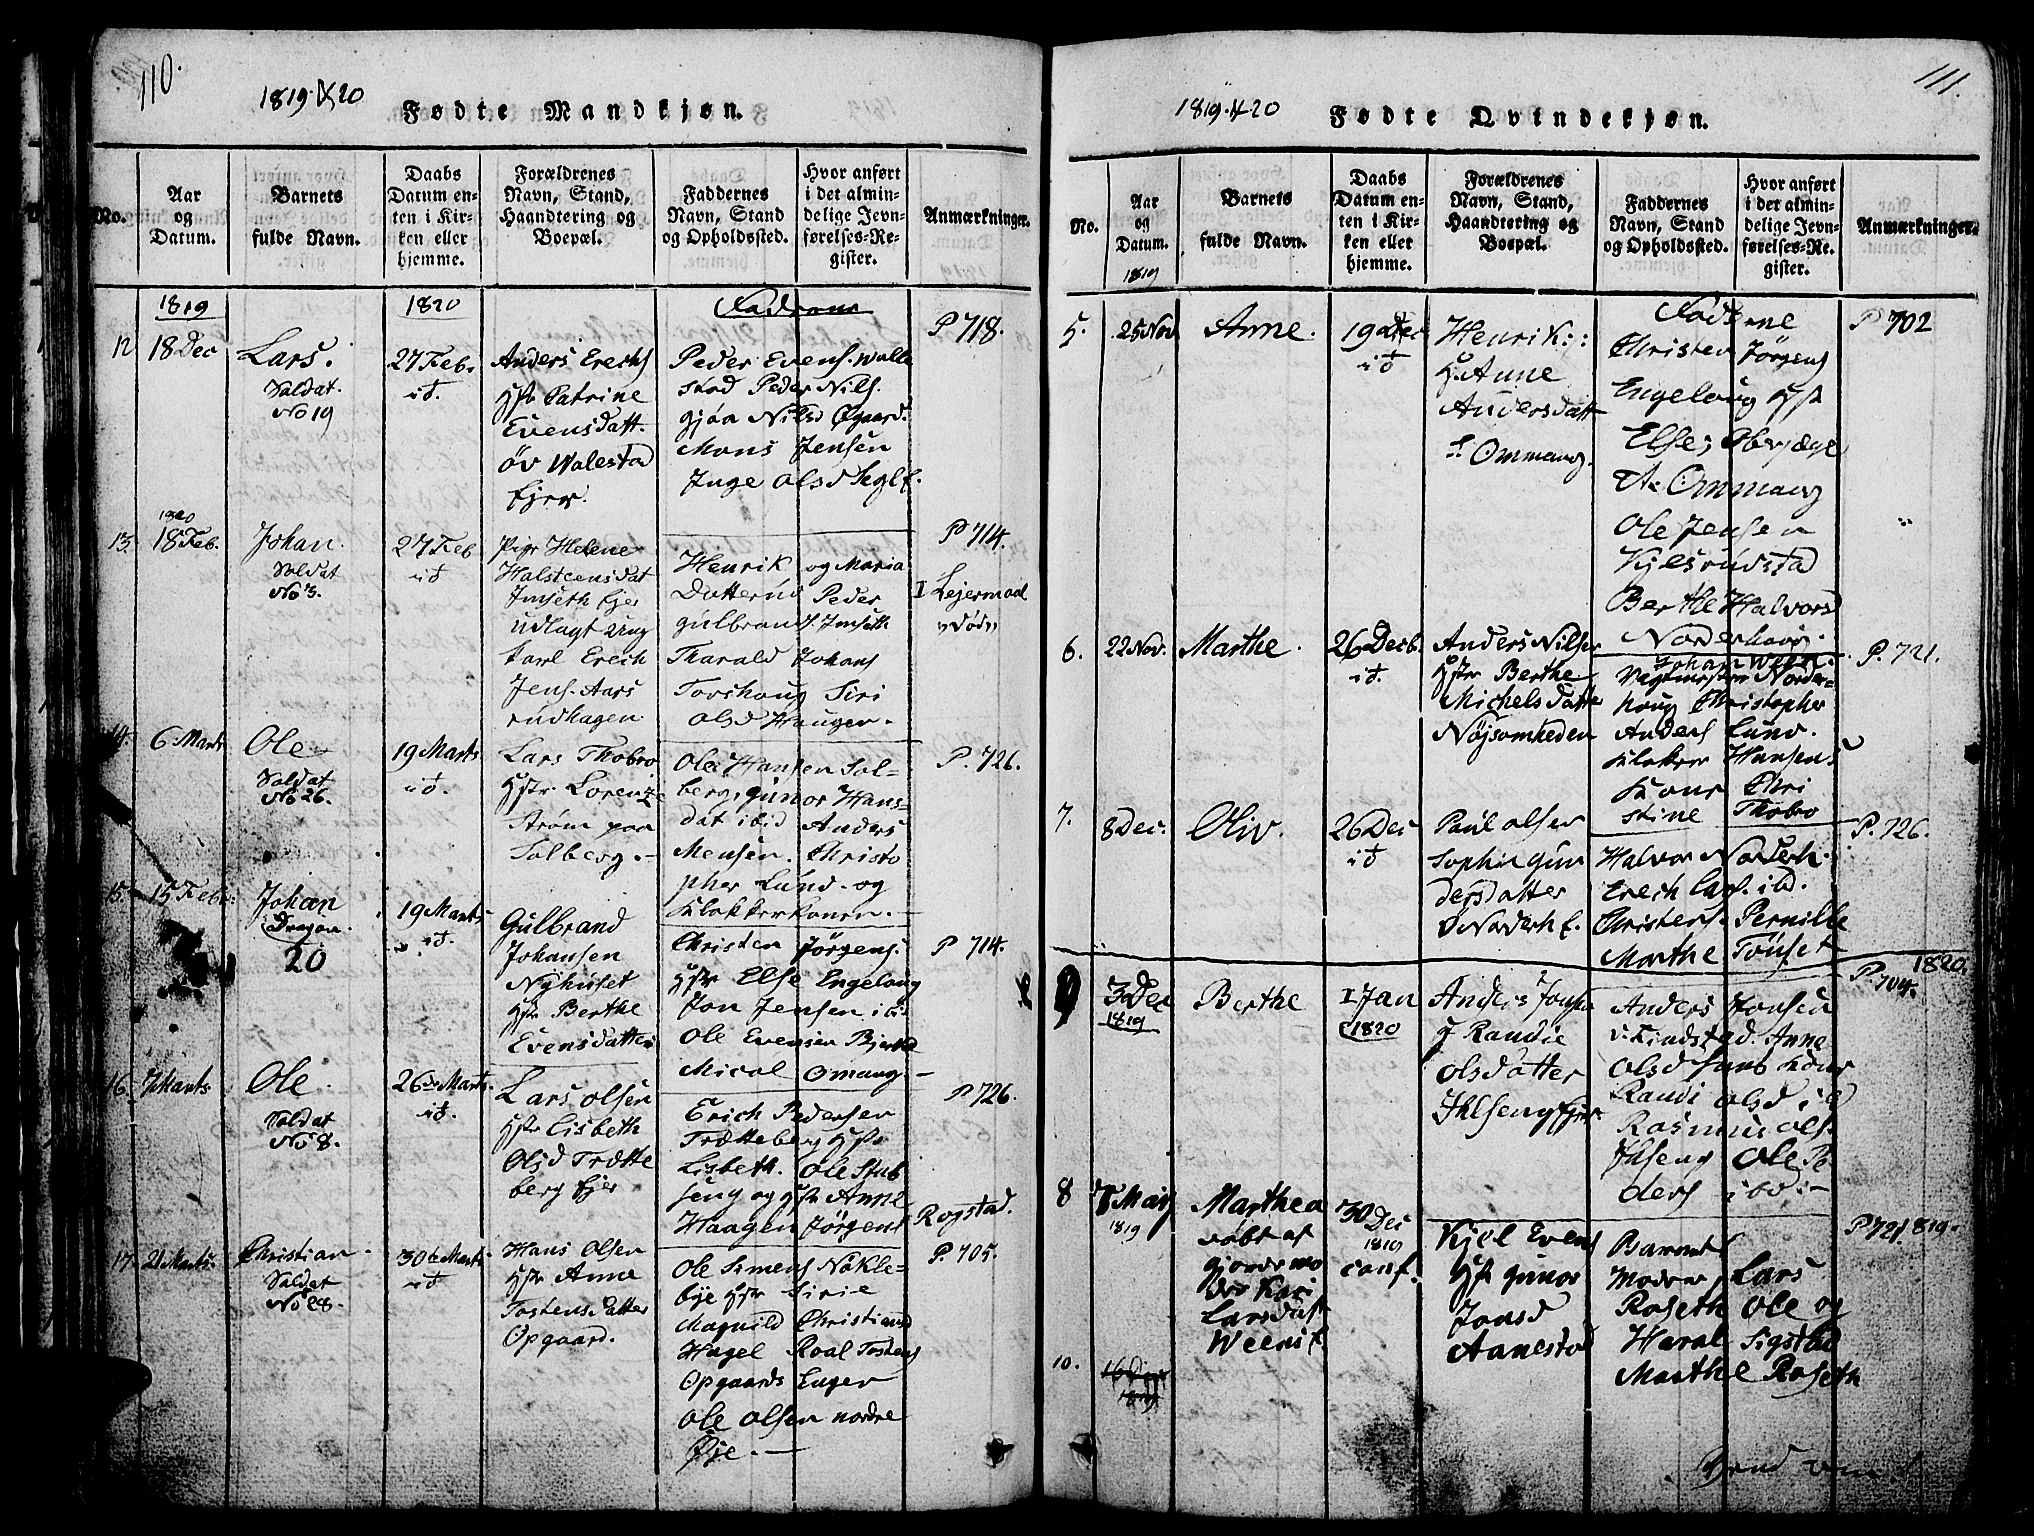 110.
1819 & 20
Fødte Mandkjøn.
No.
Aar
og
Datum.
Barnets
fulde Navn.
Daabs
Datum en-
ten i Kir-
ken eller
hjemme.
Forældrenes
Navn, Stand,
Haandtering og
Boepæl.
Faddernes
Navn, Stand
og Opholdssted.
Hvor anført
i det almin-
delige Jevn-
førelses-Re-
gister.
Anmærkninger.
1819
1820
Faderne
12
18 Dec
Lars.
Soldat.
No 19
27 Feb.
Anders Erechs
Hstr Patrine
Evensdatt.
Øv Walestad
Ejer.
Peder Evens. Walle
stad Peder Nils.
gjøa Nils Øgaard.
Mons Jensen
Inge Olsd
P 718.
1820
13.
18 Feb.
Johan.
Soldat
No 3.
27 Feb
Pige Helene
Halsteensdat
Imseth Ejer
udlagt ung
karl Erech
Jens. Aars
rudhagen
Henrik og Maria
Dotterud Peder
Gulbrands. Imseth
Tharald Johans
Torshoug Siri
Olsd Hauger.
P 714.
1 Lejermaal
"Død"
14.
6 Marts
Ole
Soldat
No 26.
19 Marts
Lars Thobro
Hstr Lorenze
Strøm paa
Solberg.
Ole Hansen Sol-
berg, Gunor Hans-
dat ibid Anders
Mensen. Christo
pher Lund. og
Klokkerkonen.
P. 726.
15.
15 Feb.
Johan
Dragon.
20
19 Marts
Gulbrand
Johansen
Nyhuset
Hstr Berthe
Evensdatter
Christen Jørgens.
Hstr Else Engeloug
Jon Jensen ibi
Ole Evensen Bjerke
Micol Omang.
P 714.
16.
7 Marts
Ole.
Soldat
No 8.
26de Marts.
Lars Olsen
Hstr Lisbeth
Olsd Trætte
berg Ejer
Erich Pedersen
Trætteberg Hstr
Lisbeth. Ole Stub
seng og Hstr Anne
Haagen Jørgens
Rogstad.
P 726.
17.
21 Marts.
Christian
Soldat
No 28.
30te Marts
Hans Olsen
Hstr Anne
Tostens Datter
Opgaard.
Ole Simens Nokle-
bye Hstr Sirie
Magnild Christiansd
Hugel Roal Tostens
Opgaards Enger
Ole Olsen nordre
Øje.
P. 705.
111.
1819 & 20
Fødte Qvindekjøn.
No.
Aar
og
Datum.
1819
Barnets
fulde Navn.
Daabs
Datum en-
ten i Kir-
ken eller
hjemme.
Forældrenes
Navn, Stand,
Haandtering og
Boepæl.
Faddernes
Navn, Stand
og Opholdssted.
Hvor anført
i det almin-
delige Jevn-
førelses-Re-
gister.
Anmærkninger.
5.
25 Nov
Anne.
19 Dec
Henrik
H. Anne
Andersdatt
Ommang.
Christen Jørgens
Engeloug Hstr
Else, Oberjæge
A. Ommang
Ole Jensen
Kjelsrudstad
Berthe Halvors
Norderhoug.
P 702
6.
22 Nov.
Marthe.
26 Decb.
Anders Nilsen
Hstr Berthe
Michelsdatte
Nøjsomheden
Johan
Vagtmester Norder-
houg Christopher
Anders Lund.
Klokker Hansen.
Kone Chri
stine Thobro
P. 721.
7.
8 Dec.
Oliv.
26 Dec
Paul Olsen
Sophie Gun
dersdatter
Norderh E.
Halvor Norderh.
Erech Lars. ibd.
Christers. Pernille
Marthe Tønset
P. 726.
9
3 Dec
1819
Berthe
1 Jan
1820
Anders
H Randie
Olsdatter
Ihlseng Ejer
Anders Hansen
v. Findstad. Anne
Olsd kone
Randi Olsd ibd
Rasmus Ols.
Ihseng Ole Pe
ders ibd.
1820
P. 704.
8
1819
Marthea
døbt af
gjordemo
der Kari
Larsdat
30 Dec
1819
conf.
Kjel Evens
Hstr Gunor
Jonsd
Aanestad
Barnets
Moder, Lars
Roseth Ole og
Haral Sigstad
Marthe Roseth
P 721. 819.
10.
16 Dec
1819
Vend om!